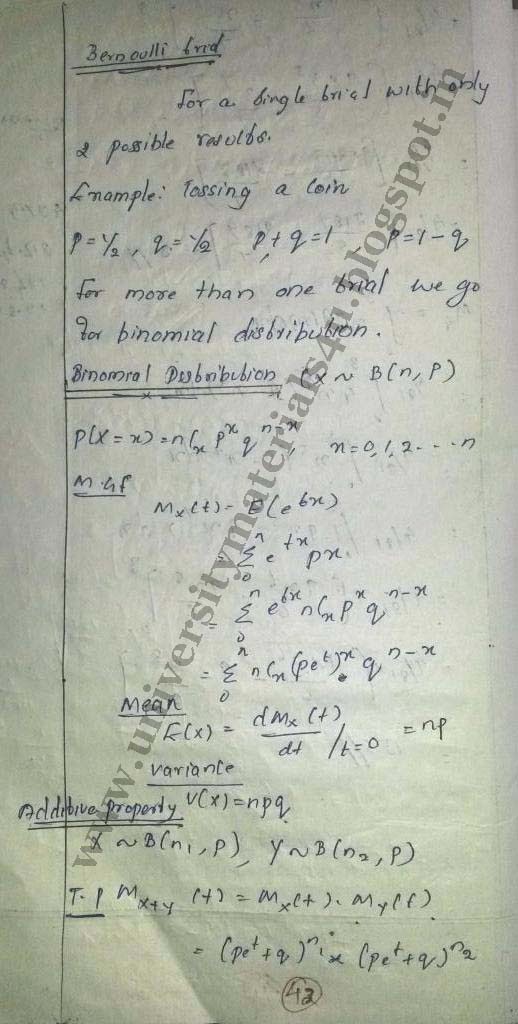 Bernoulli trial
For a single trial with only
2 possible results.
Example: Tossing a coin
p = 1/2, q = 1/2 p + q = 1 p = 1 - q
For more than one trial we go
for binomial distribution.
Binomial Distribution (X ~ B(n, p)
P(X = x) = nCx p^x q^{n-x} x = 0, 1, 2 - - - n
M.G.f
Mx(t) = E(e^{tx})
= Σ_0^n e^{tx} px
= Σ_0^n e^{tx} nCx p^x q^{n-x}
= Σ_0^n nCx (pe^t)^x q^{n-x}
Mean
E(x) = dMx(t)/dt /t=0 = np
Variance
V(x) = npq
Additive property
X ~ B(n1, p), Y ~ B(n2, p)
T.P M_{x+y} (t) = Mx(t). My(t)
= (pe^t + q)^{n1} x (pe^t + q)^{n2}
42
www.universitymaterials4u.blogspot.in